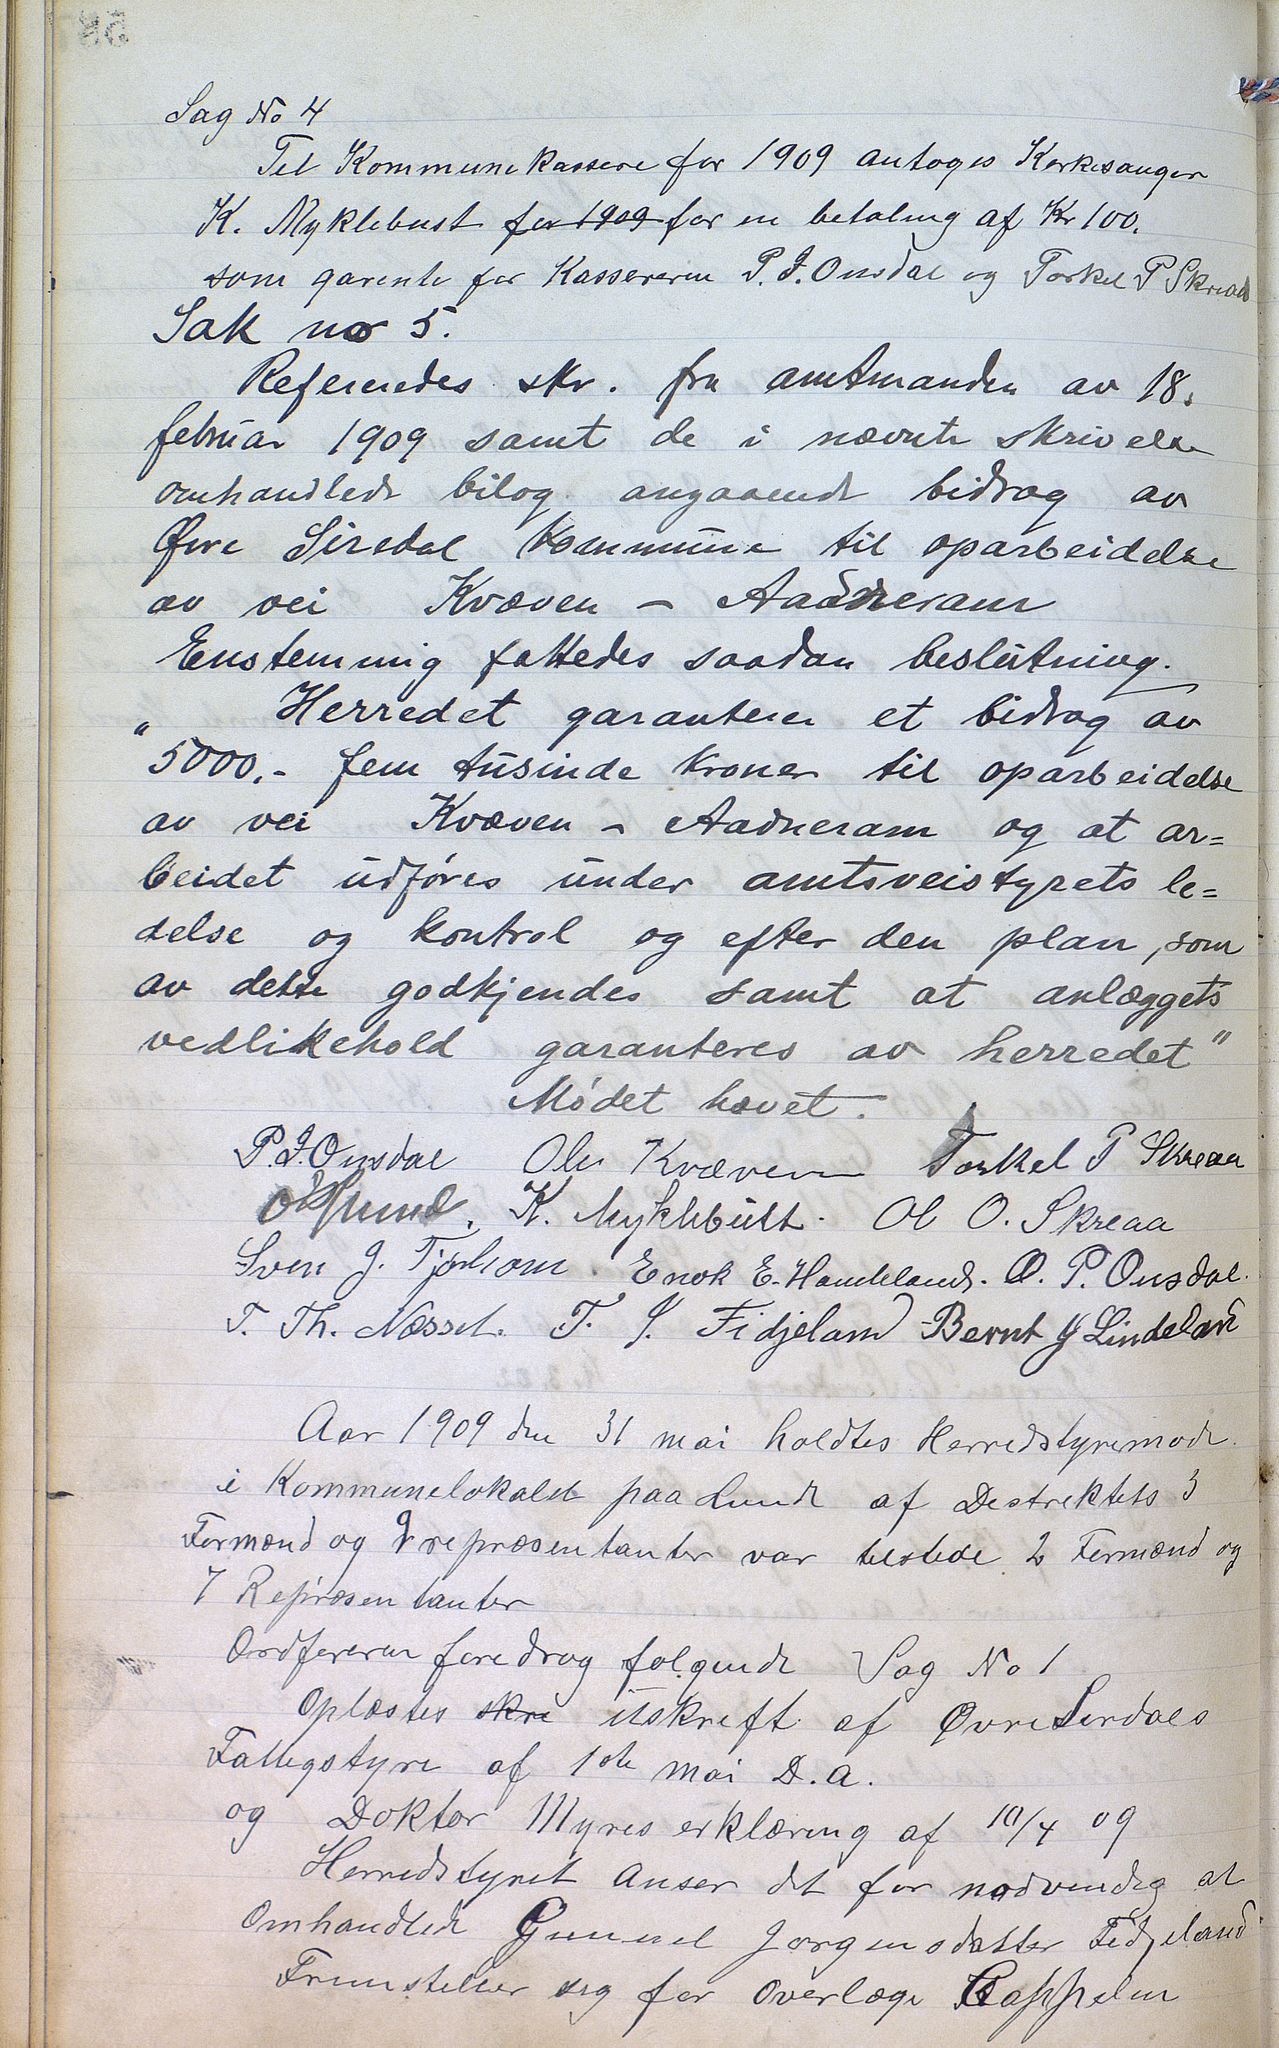 Sag No 4
Til Kommunekassere for 1909 antoges Kirkesanger
K. Myklebust for 1909 for en betaling af Kr 100.
som garente for Kassereren P. J. Ousdal og Torkel P Skreaa
Sak no 5.
Refereredes skr. fra amtmanden av 18.
februar 1909 samt de i nævnte skrivelse
omhandlede bilag angaaende bidrag av
Øvre Sirdal Kommune til oparbeidelse
av vei Kvæven - Aadneram
Enstemmig fattedes saadan beslutning.
" Herredet garanterer et bidrag av
5000.- fem tusinde kroner til oparbeidelse
av vei Kvæven - Aadneram og at ar=
beidet udføres under amtsveistyrets le=
delse og kontrol og efter den plan, som
av dette godkjendes samt at anlæggets
vedlikehold garanteres av herredet"
Mødet hævet.
P. J. Ousdal Ole Kvæven Torkel P Skreaa
K. Myklebust. Ol O. Skreaa
Sven J. Tjørhom. Enok E. Handeland. O. P. Ousdal.
T. Th. Næsset. T. J. Fidjeland Bernt G Lindeland
Aar 1909 den 31 mai holdtes Herredstyremøde
i Kommunelokalet paa Lunde af Destrektets 3
Formænd og 9 repræsentanter var tilstede 2 Formænd og
7 Repræsentanter
Ordføreren foredrog følgende Sag No 1
Oplæstes skre utskreft af Øvre Sirdals
Fattigstyre af 1ste mai D.a.
og Doktor Myres erklæring af 10/4 09
Herredstyret anser det for nødvendig at
Omhandlede Gunnel Jørgensdatter Fidjeland
Fremstiller sig for Overlæge Cappelen